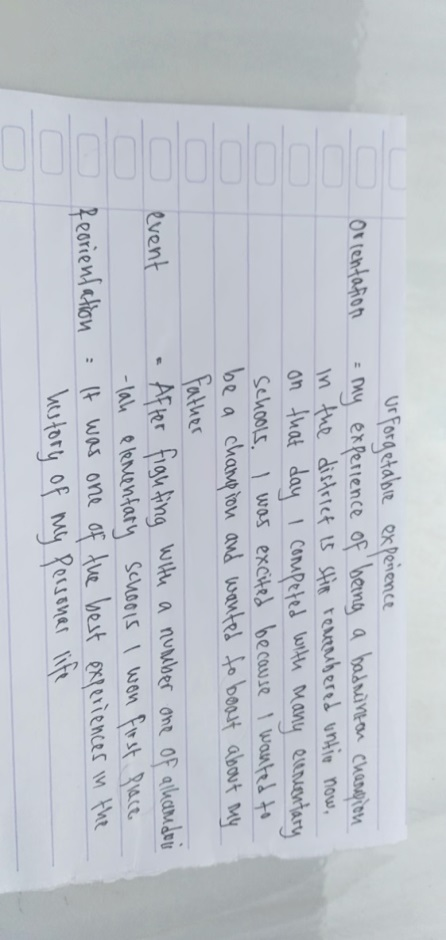 Unforgetable experience
Orientation = my experience of being a badminton champion
in the district is still remembered until now.
on that day I competed with many elementary
schools. I was excited because I wanted to
be a champion and wanted to boast about my
father
event = After fighting with a number one of alhamdui
-lah elementary schools I won first place
Reorientation = It was one of the best experiences in the
history of my personal life